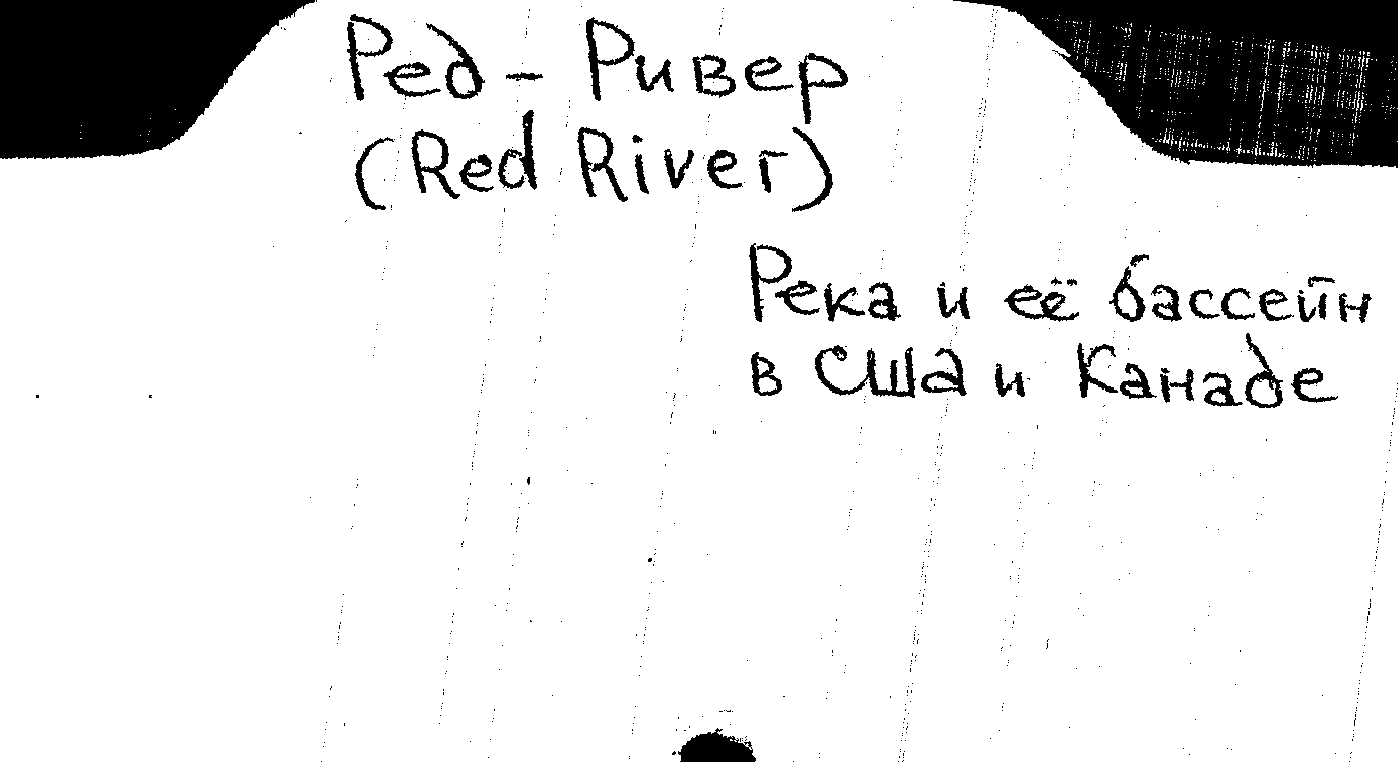 Ред - Ривер
(Red River)
Река и её бассейн
в США и Канаде